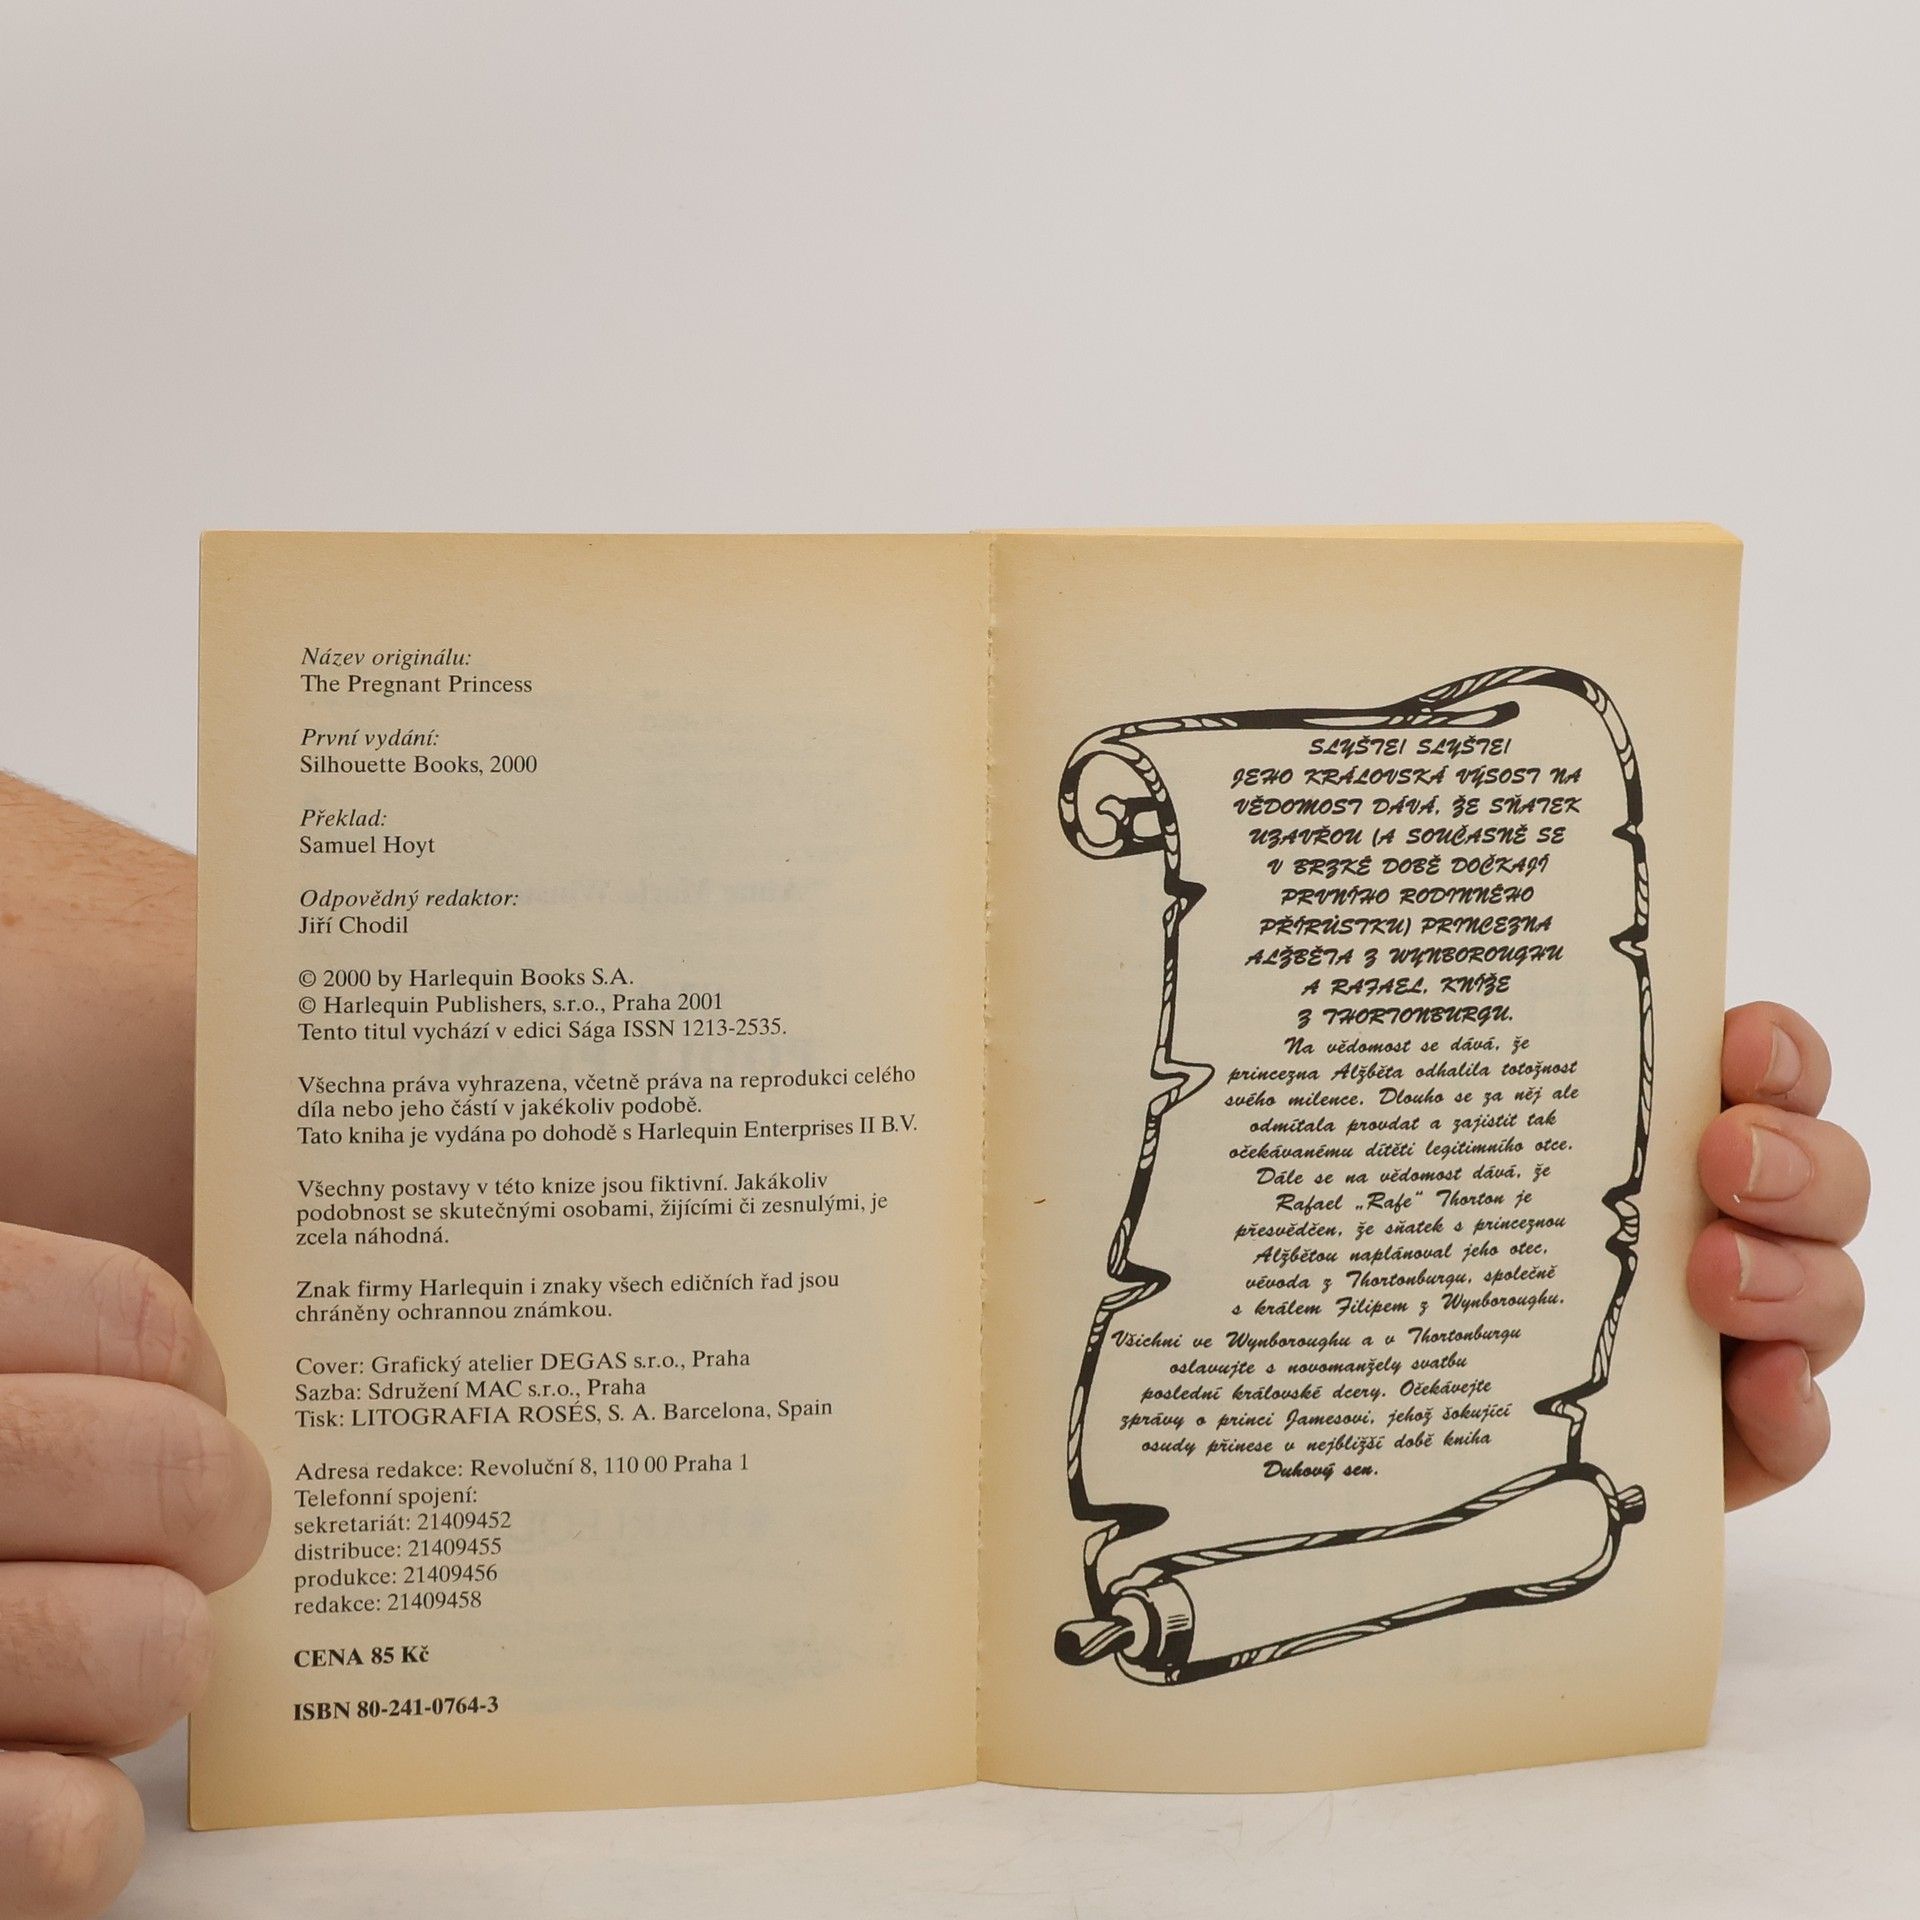 Název originálu:
The Pregnant Princess
První vydání:
Silhouette Books, 2000
Překlad:
Samuel Hoyt
Odpovědný redaktor:
Jiří Chodil
© 2000 by Harlequin Books S.A.
© Harlequin Publishers, s.r.o., Praha 2001
Tento titul vychází v edici Sága ISSN 1213-2535.
Všechna práva vyhrazena, včetně práva na reprodukci celého
díla nebo jeho částí v jakékoliv podobě.
Tato kniha je vydána po dohodě s Harlequin Enterprises II B.V.
Všechny postavy v této knize jsou fiktivní. Jakákoliv
podobnost se skutečnými osobami, žijícími či zesnulými, je
zcela náhodná.
Znak firmy Harlequin i znaky všech edičních řad jsou
chráněny ochrannou známkou.
Cover: Grafický atelier DEGAS s.r.o., Praha
Sazba: Sdružení MAC s.r.o., Praha
Tisk: LITOGRAFIA ROSÉS, S. A. Barcelona, Spain
Adresa redakce: Revoluční 8, 110 00 Praha 1
Telefonní spojení:
sekretariát: 21409452
distribuce: 21409455
produkce: 21409456
redakce: 21409458
CENA 85 Kč
ISBN 80-241-0764-3
SLYŠTE! SLYŠTE!
JEHO KRÁLOVSKÁ VÝSOST NA
VĚDOMOST DÁVÁ, ŽE SŇATEK
UZAVŘOU (A SOUČASNĚ SE
V BRZKÉ DOBĚ DOČKAJÍ
PRVNÍHO RODINNÉHO
PŘÍRŮSTKU) PRINCEZNA
ALŽBĚTA Z WYNBOROUGHU
A RAFAEL, KNÍŽE
Z THORTONBURGU.
Na vědomost se dává, že
princezna Alžběta odhalila totožnost
svého milence. Dlouho se za něj ale
odmítala provdat a zajistit tak
očekávanému dítěti legitimního otce.
Dále se na vědomost dává, že
Rafael „Rafe“ Thorton je
přesvědčen, že sňatek s princeznou
Alžbětou naplánoval jeho otec,
vévoda z Thortonburgu, společně
s králem Filipem z Wynboroughu.
Všichni ve Wynboroughu a v Thortonburgu
oslavujte s novomanžely svatbu
poslední královské dcery. Očekávejte
zprávy o princi Jamesovi, jehož šokující
osudy přinese v nejbližší době kniha
Duhový sen.